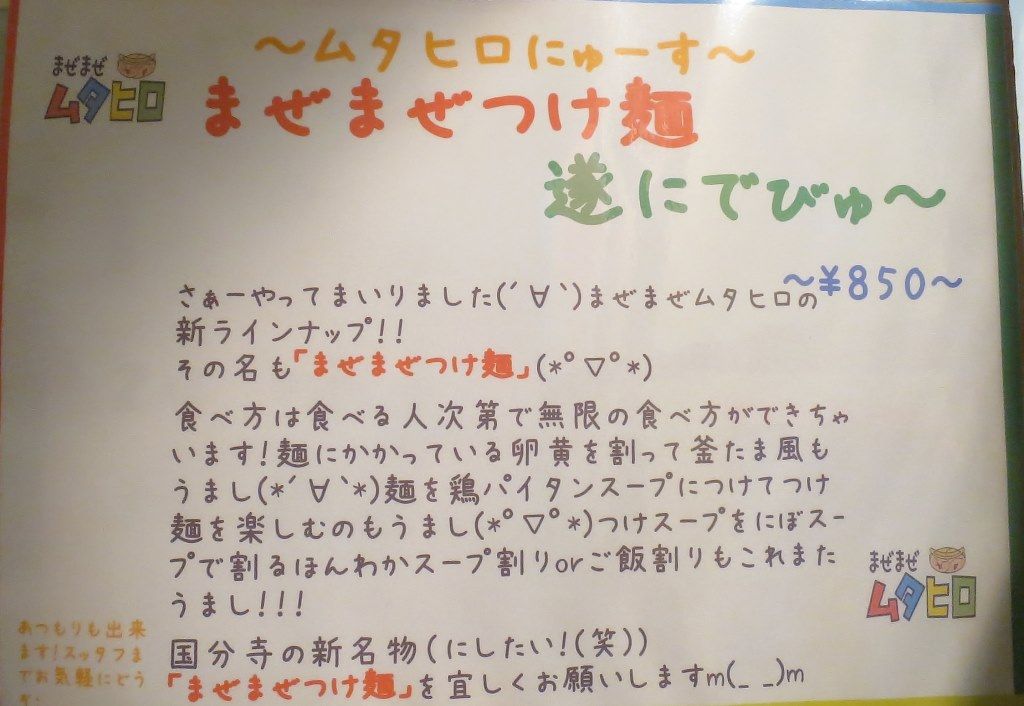 ～ムタヒロにゅーす～
まぜまぜ
ムタヒロ
まぜまぜつけ麺
遂にでびゅ～
～¥850～
さぁーやってまいりました(´∀`)まぜまぜムタヒロの
新ラインナップ!!
その名も「まぜまぜつけ麺」(*ﾟ▽ﾟ*)
食べ方は食べる人次第で無限の食べ方ができちゃ
います!麺にかかっている卵黄を割って釜たま風も
うまし(*´∀`*)麺を鶏パイタンスープにつけてつけ
麺を楽しむのもうまし(*ﾟ▽ﾟ*)つけスープをにぼスー
プで割るほんわかスープ割りorご飯割りもこれまた
うまし!!!
国分寺の新名物(にしたい!(笑))
「まぜまぜつけ麺」を宜しくお願いしますm(_ _)m
まぜまぜ
ムタヒロ
あつもりも出来
ます!スッタフま
でお気軽にどう
ぞ.